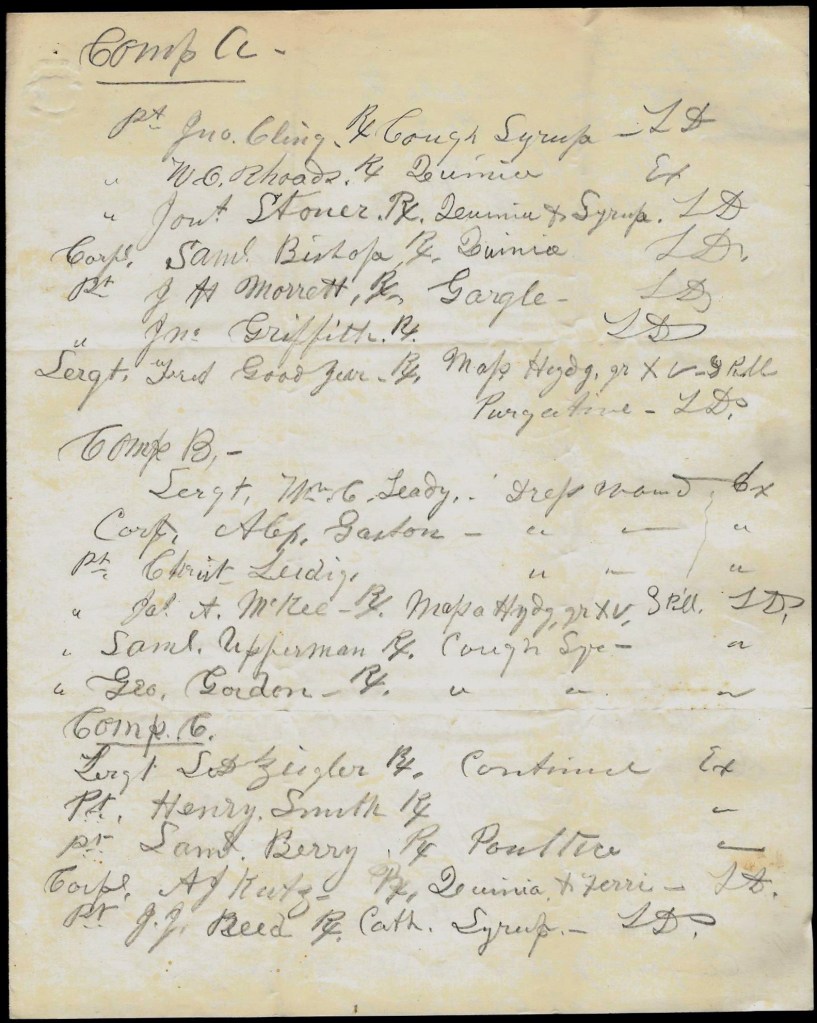 Comp A -
Pt Jno. Cling. Rx Cough Syrup - L D
" W.C. Rhoads. Rx Quinia Ex
" Jont. Stoner. Rx. Quinia & Syrup. L D
Corpl. Saml. Bishop Rx. Quinia L D.
Pt J H Morrett, Rx. Gargle - L D
" Jno Griffith. Rx. L D
Sergt. Fred Goodyear - Rx. Mass Hydg. gr XV - 3 Pill
Purgative - L D.
Comp B, -
Sergt. Wm. C. Leady. - Dress wound Ex
Corp. Alex. Gaston - " " "
Pt. Christ Leidig. " " "
" Jas. A. McKee - Rx. Massa Hydg, gr XV, 3 Pill. L D.
" Saml. Upperman Rx. Cough Syr - "
" Geo. Gordon - Rx. " " "
Comp. C.
Sergt Zeigler Rx. Continue Ex
Pt. Henry Smith Rx "
Pt Saml. Berry. Rx Poultice "
Corpl. A J Kutz - Rx. Quinia & Ferri - L D.
Pt J. J. Reed Rx. Cath. Syrup. - L D.